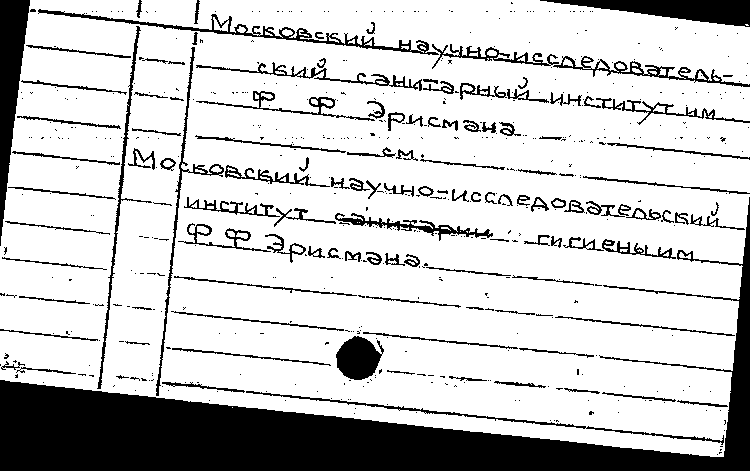 Московский научно-исследователь-
ский санитарный институт им.
Ф. Ф Эрисмана
см.
Московский научно-исследовательский
институт санитарии гигиены им.
Ф. Ф Эрисмана.